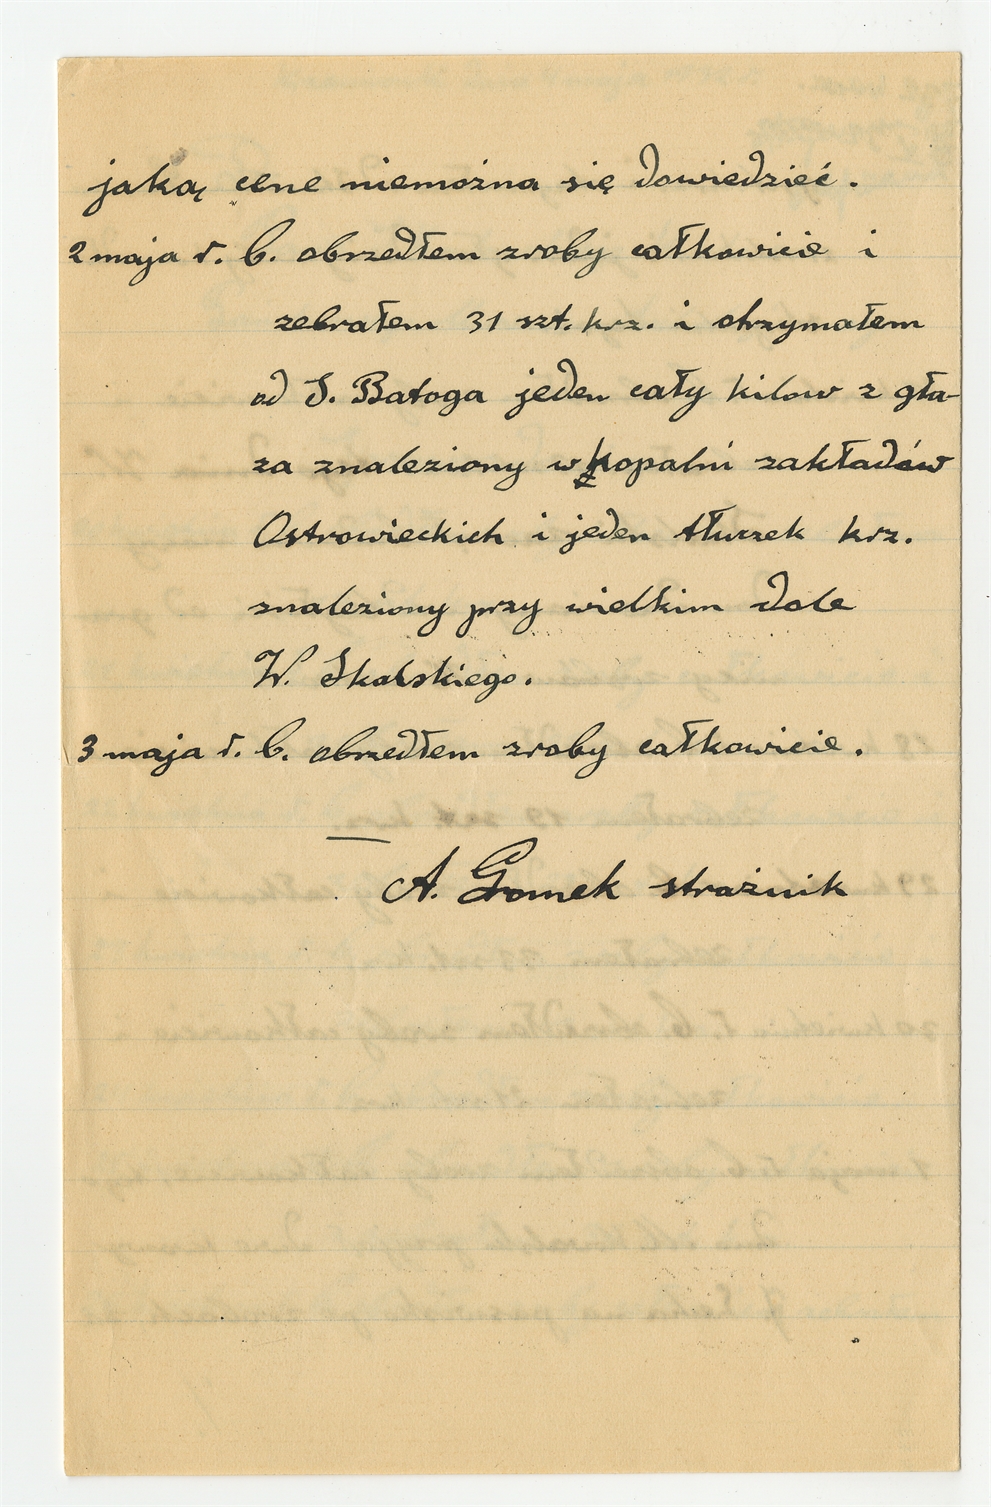 jaką cene niemożna się dowiedzieć.
2 maja r. b. obszedłem zroby całkowicie i
zebrałem 31 szt. krz. i otrzymałem
od S. Batoga jeden cały kilow z gła-
za znaleziony w kopalni zakładów
Ostrowieckich i jeden tłuczek krz.
znaleziony przy wielkim dole
W. Skalskiego.
3 maja r. b. obszedłem zroby całkowicie.
A. Gromek strażnik